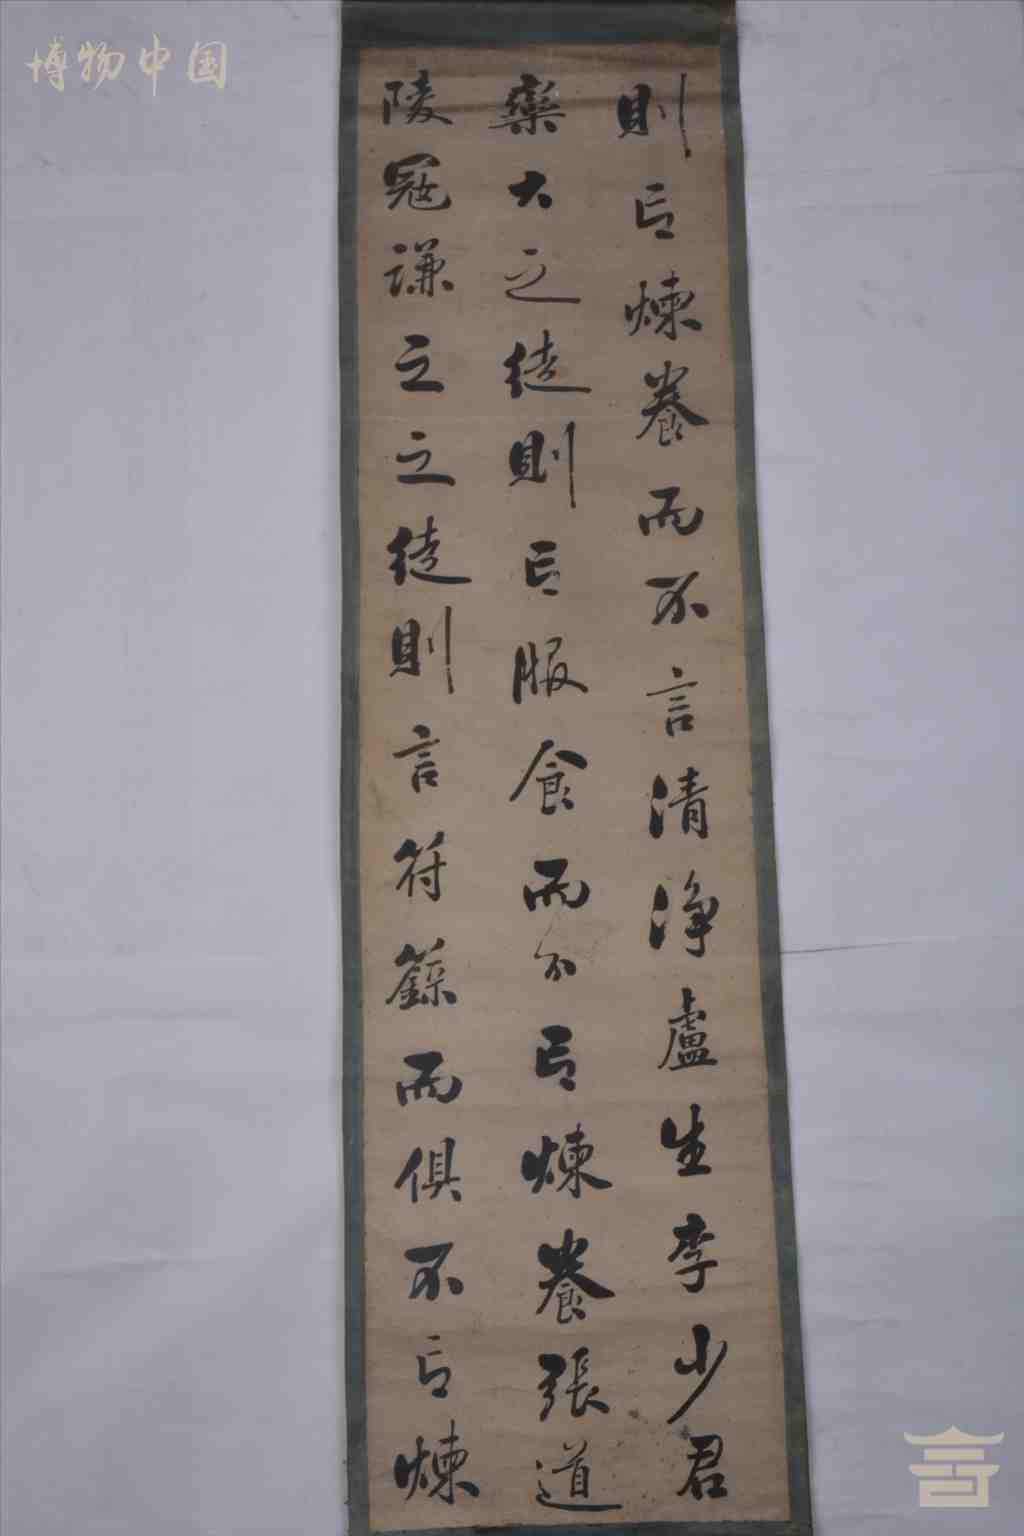 博物中国
則言煉養而不言清淨盧生李少君
欒大之徒則言服食而不言煉養張道
陵寇謙之之徒則言符籙而俱不言煉